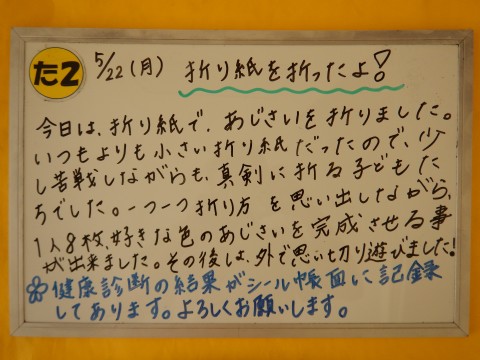 た2 5/22(月) 折り紙を折ったよ!
今日は、折り紙で、あじさいを折りました。
いつもよりも小さい折り紙だったので、少
し苦戦しながらも、真剣に折る子どもた
ちでした。一つ一つ折り方を思い出しながら、
1人8枚、好きな色のあじさいを完成させる事
が出来ました。その後は、外で思い切り遊びました!
健康診断の結果がシール帳面に記録
してあります。よろしくお願いします。